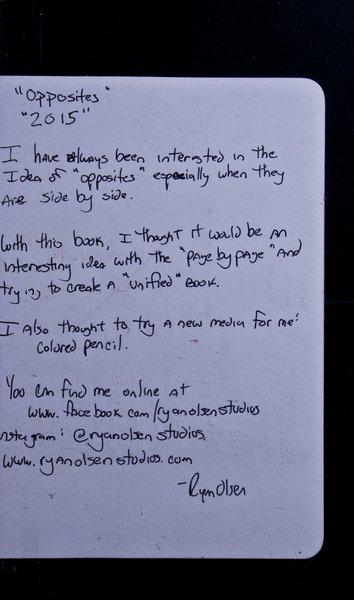 "Opposites"
"2015"
I have always been interested in the
Idea of "opposites" especially when they
are side by side.
With this book, I thought it would be an
interesting idea with the "page by page" and
trying to create a "unified" Book.
I also thought to try a new media for me:
colored pencil.
You can find me online at
www.facebook.com/ryanolsenstudios
nstagram: @ryanolsenstudios,
www.ryanolsenstudios.com
-Ryan Olsen